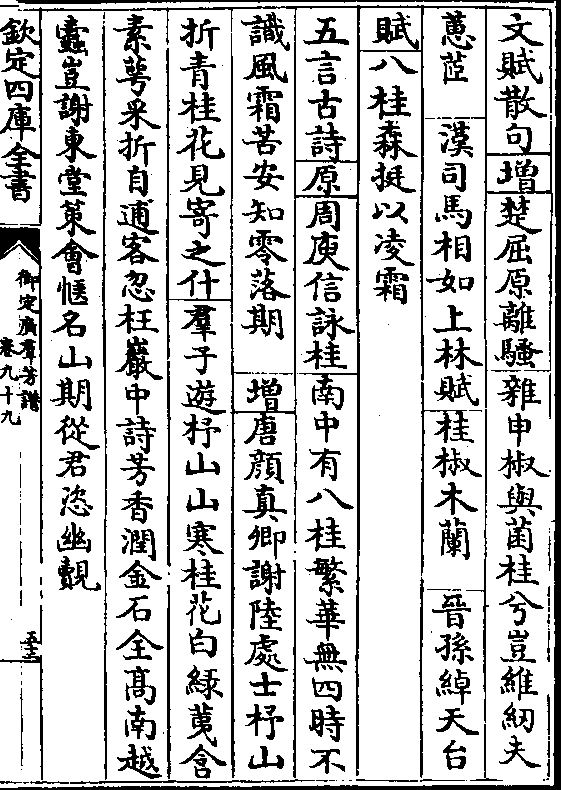 文賦散句增楚屈原離騷雜申椒與菌桂兮豈維紉夫
蕙茝　漢司馬相如上林賦桂椒木蘭　晉孫綽天台
賦八桂森挺以凌霜
五言古詩原周庾信詠桂南中有八桂繁華無四時不
識風霜苦安知零落期　增唐顏真卿謝陸處士杼山
折青桂花見寄之什羣子遊杼山山寒桂花白綠荑含
素萼采折自逋客忽枉巖中詩芳香潤金石全高南越
蠹豈謝東堂策會愜名山期從君恣幽覿
欽定四庫全書
御定廣羣芳譜
卷九十九
五十三